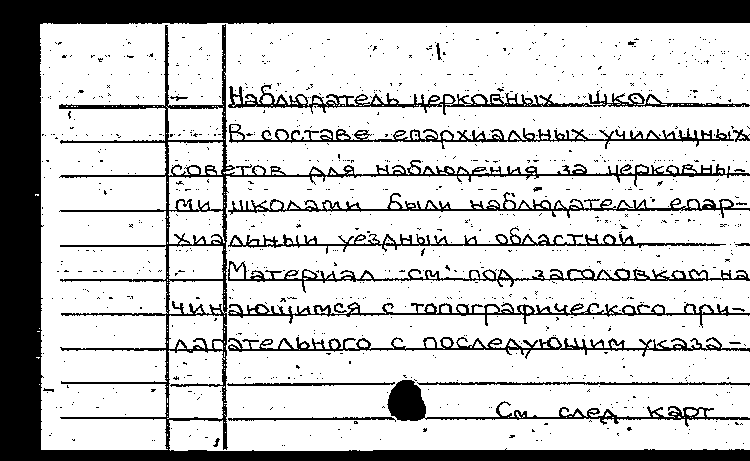 1
Наблюдатель церковных школ
В составе епархиальных училищных
советов для наблюдения за церковны-
ми школами были наблюдатели: епар-
хиальный, уездный и областной.
Материал см. под заголовком на
чинающимся с топографического при-
лагательного с последующим указа-
См. след карт